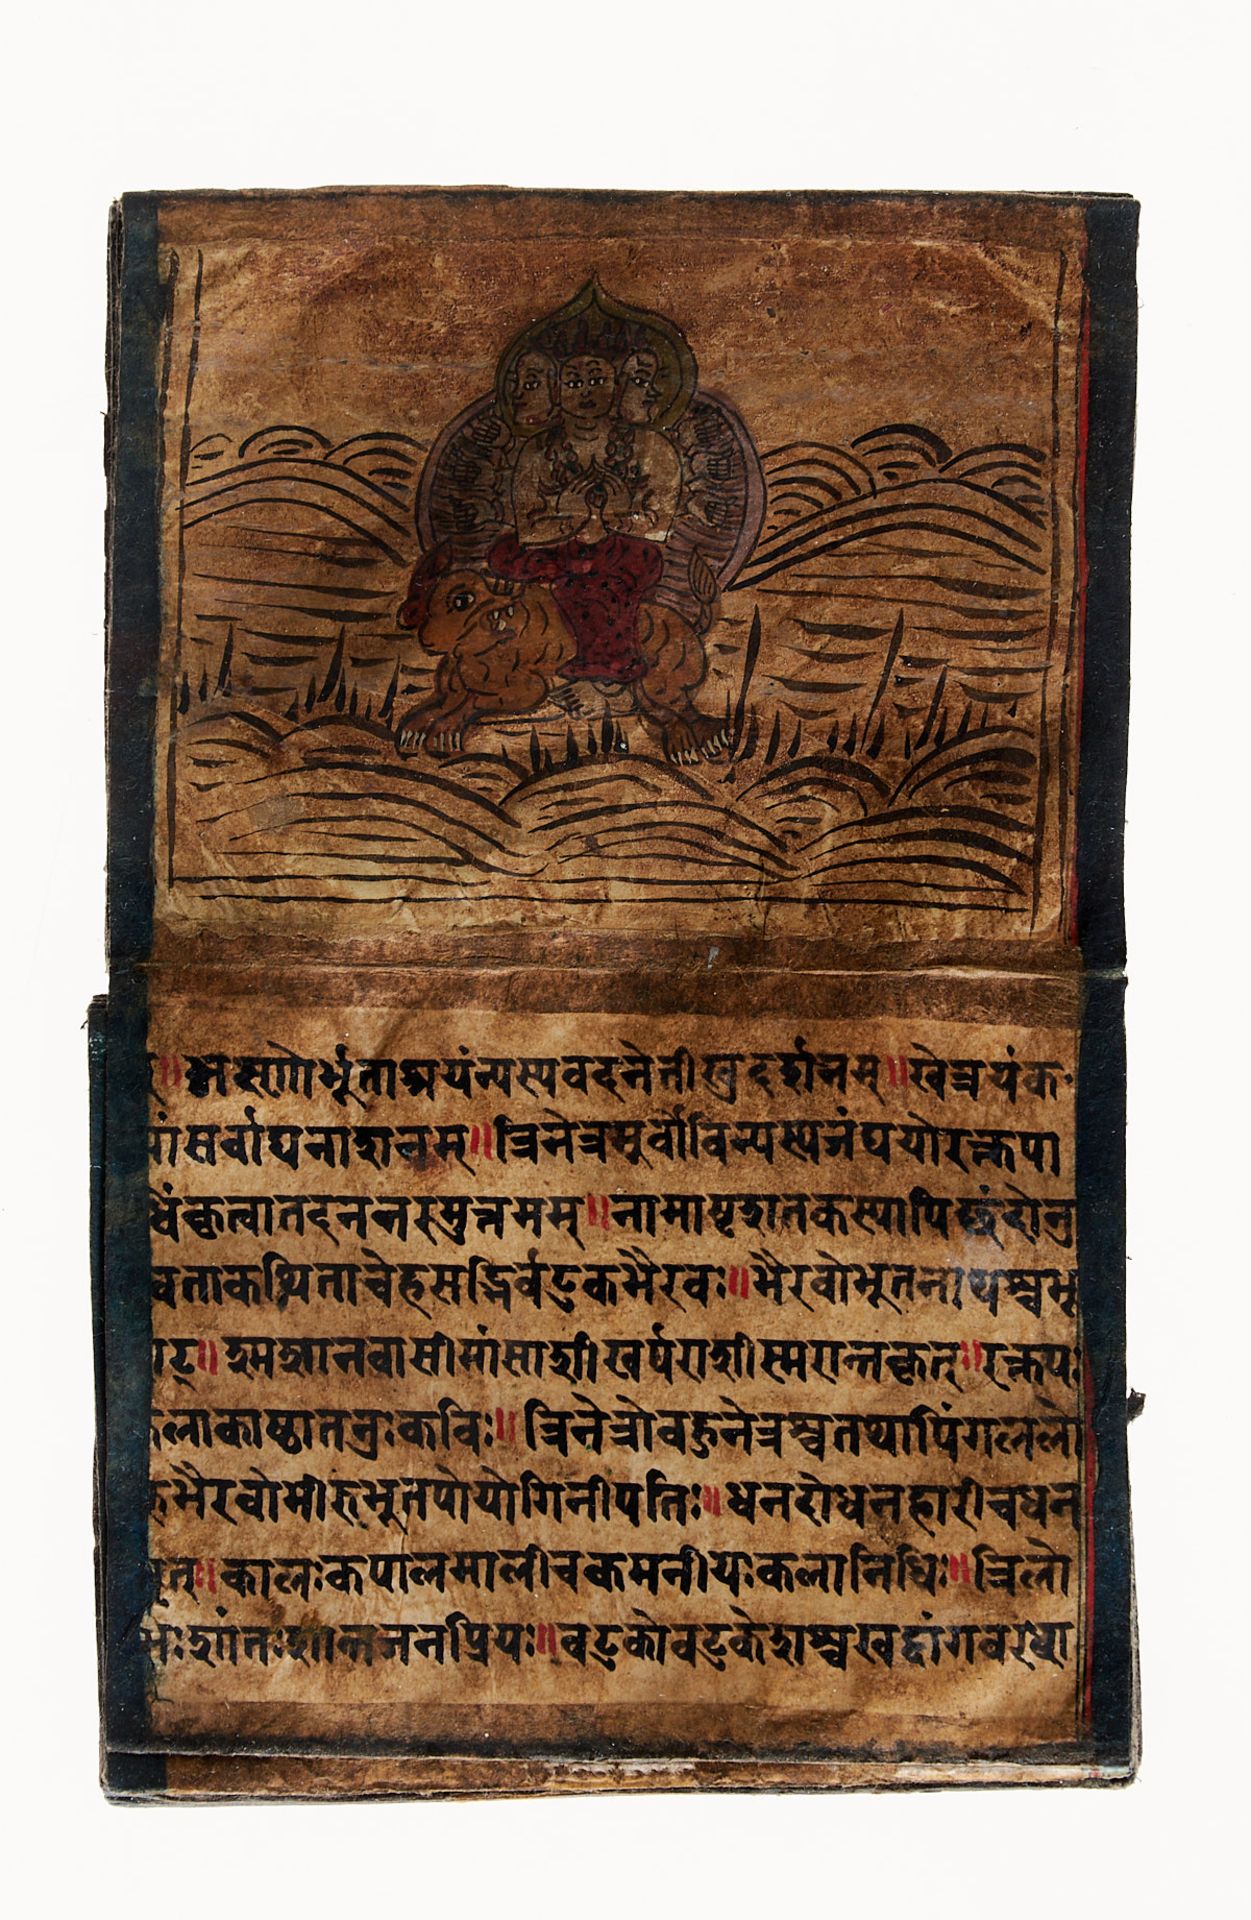 ॥भक्ष्णोर्भूताश्रयंन्यस्यवदनेतीक्ष्णदर्शनम्॥क्षेत्रयंक
सर्वाघनाशनम्॥त्रिनेत्रमुर्वोविन्यस्यजंघयोरक्तपा
कृत्वातदनन्तरुमुत्तमम्॥नामाष्टशतकस्यापिछंदोनु
वताकथिताचेहसद्भिर्वटुकभैरवः॥भैरवोभूतनाथश्चभू
राट्॥श्मशानवासीमांसाशीखर्पराशीस्मरान्तकृत्॥रक्तपः
कलाकाष्ठातनुःकविः॥त्रिनेत्रोवहुनेत्रश्चतथापिंगललो
भैरवोभीरुभूतपोयोगिनीपतिः॥धनदोधनहारीचधन
कालःकपालमालीचकमनीयःकलानिधिः॥त्रिलो
शांतःशान्तजनप्रियः॥वटुकोवटुकेशश्चखट्वांगवरधा